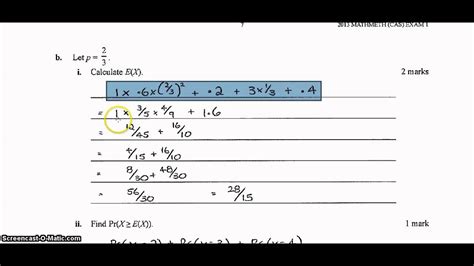 7
2013 MATHMETH (CAS) EXAM 1
b. Let p = 2/3.
i. Calculate E(X).
2 marks
1 x .6x(2/3)² + .2 + 3x1/3 + .4
= 1 x 3/5 x 4/9 + 1.6
= 12/45 + 16/10
= 4/15 + 16/10
= 8/30 + 48/30
= 56/30 = 28/15
ii. Find Pr(X ≥ E(X)).
1 mark
Screencast-O-Matic.com